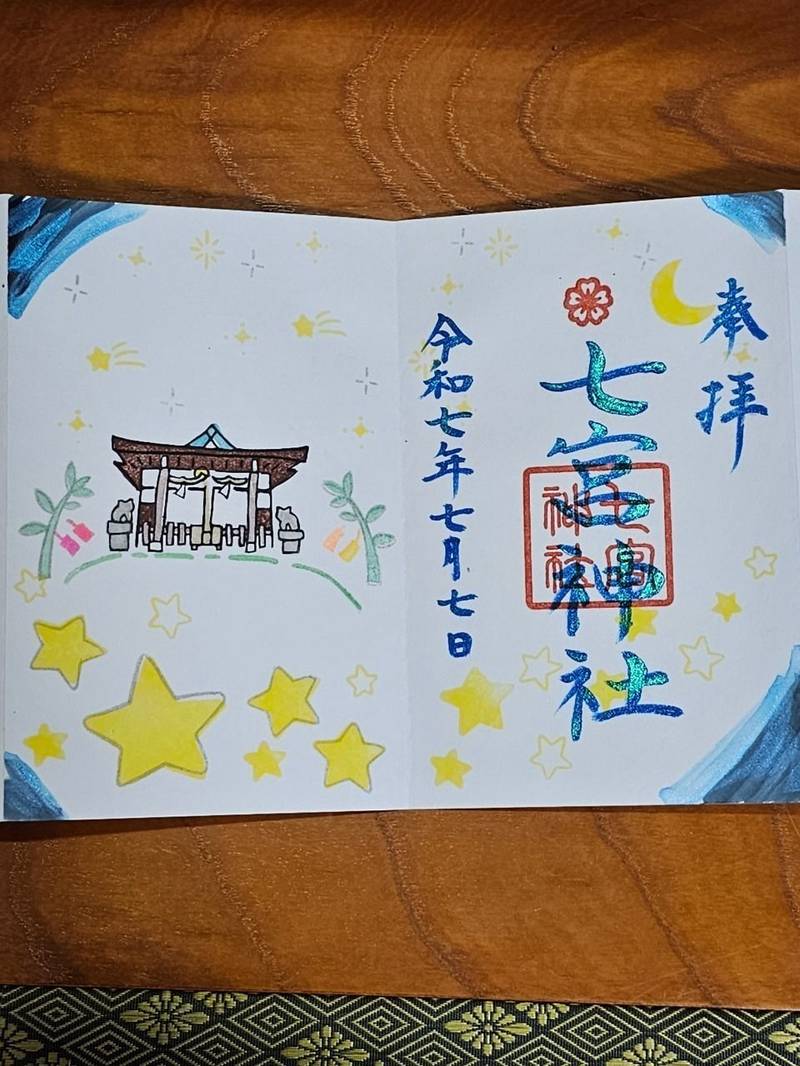 奉拝
七宮神社
七宮
神社
令和七年七月七日